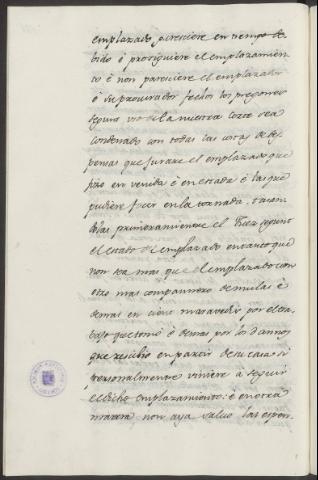 emplazado paresciere en tiempo de-
bido é prosiguiere el emplazamien-
to é non paresciere el emplazador
ó su procurador fechos los pregones
segunt uso de la nuestra corte sea
condenado con todas las costas de des-
pensas que jurare el emplazado que
fizo en venida é en estada é las que
pudiere facer en la tornada, tasan-
dolas primeramientre el Juez segunt
el estado del emplazado en tanto que
non sea mas que el emplazado con
otro mas compannero de mulas é
demas en cient maravedis por el tra-
bajo que tomó é demas por los dannos
que rescibio en partir de su casa si
personalmente viniere a seguir
el dicho emplazamiento: é en otra
manera non aya salvo las espen-